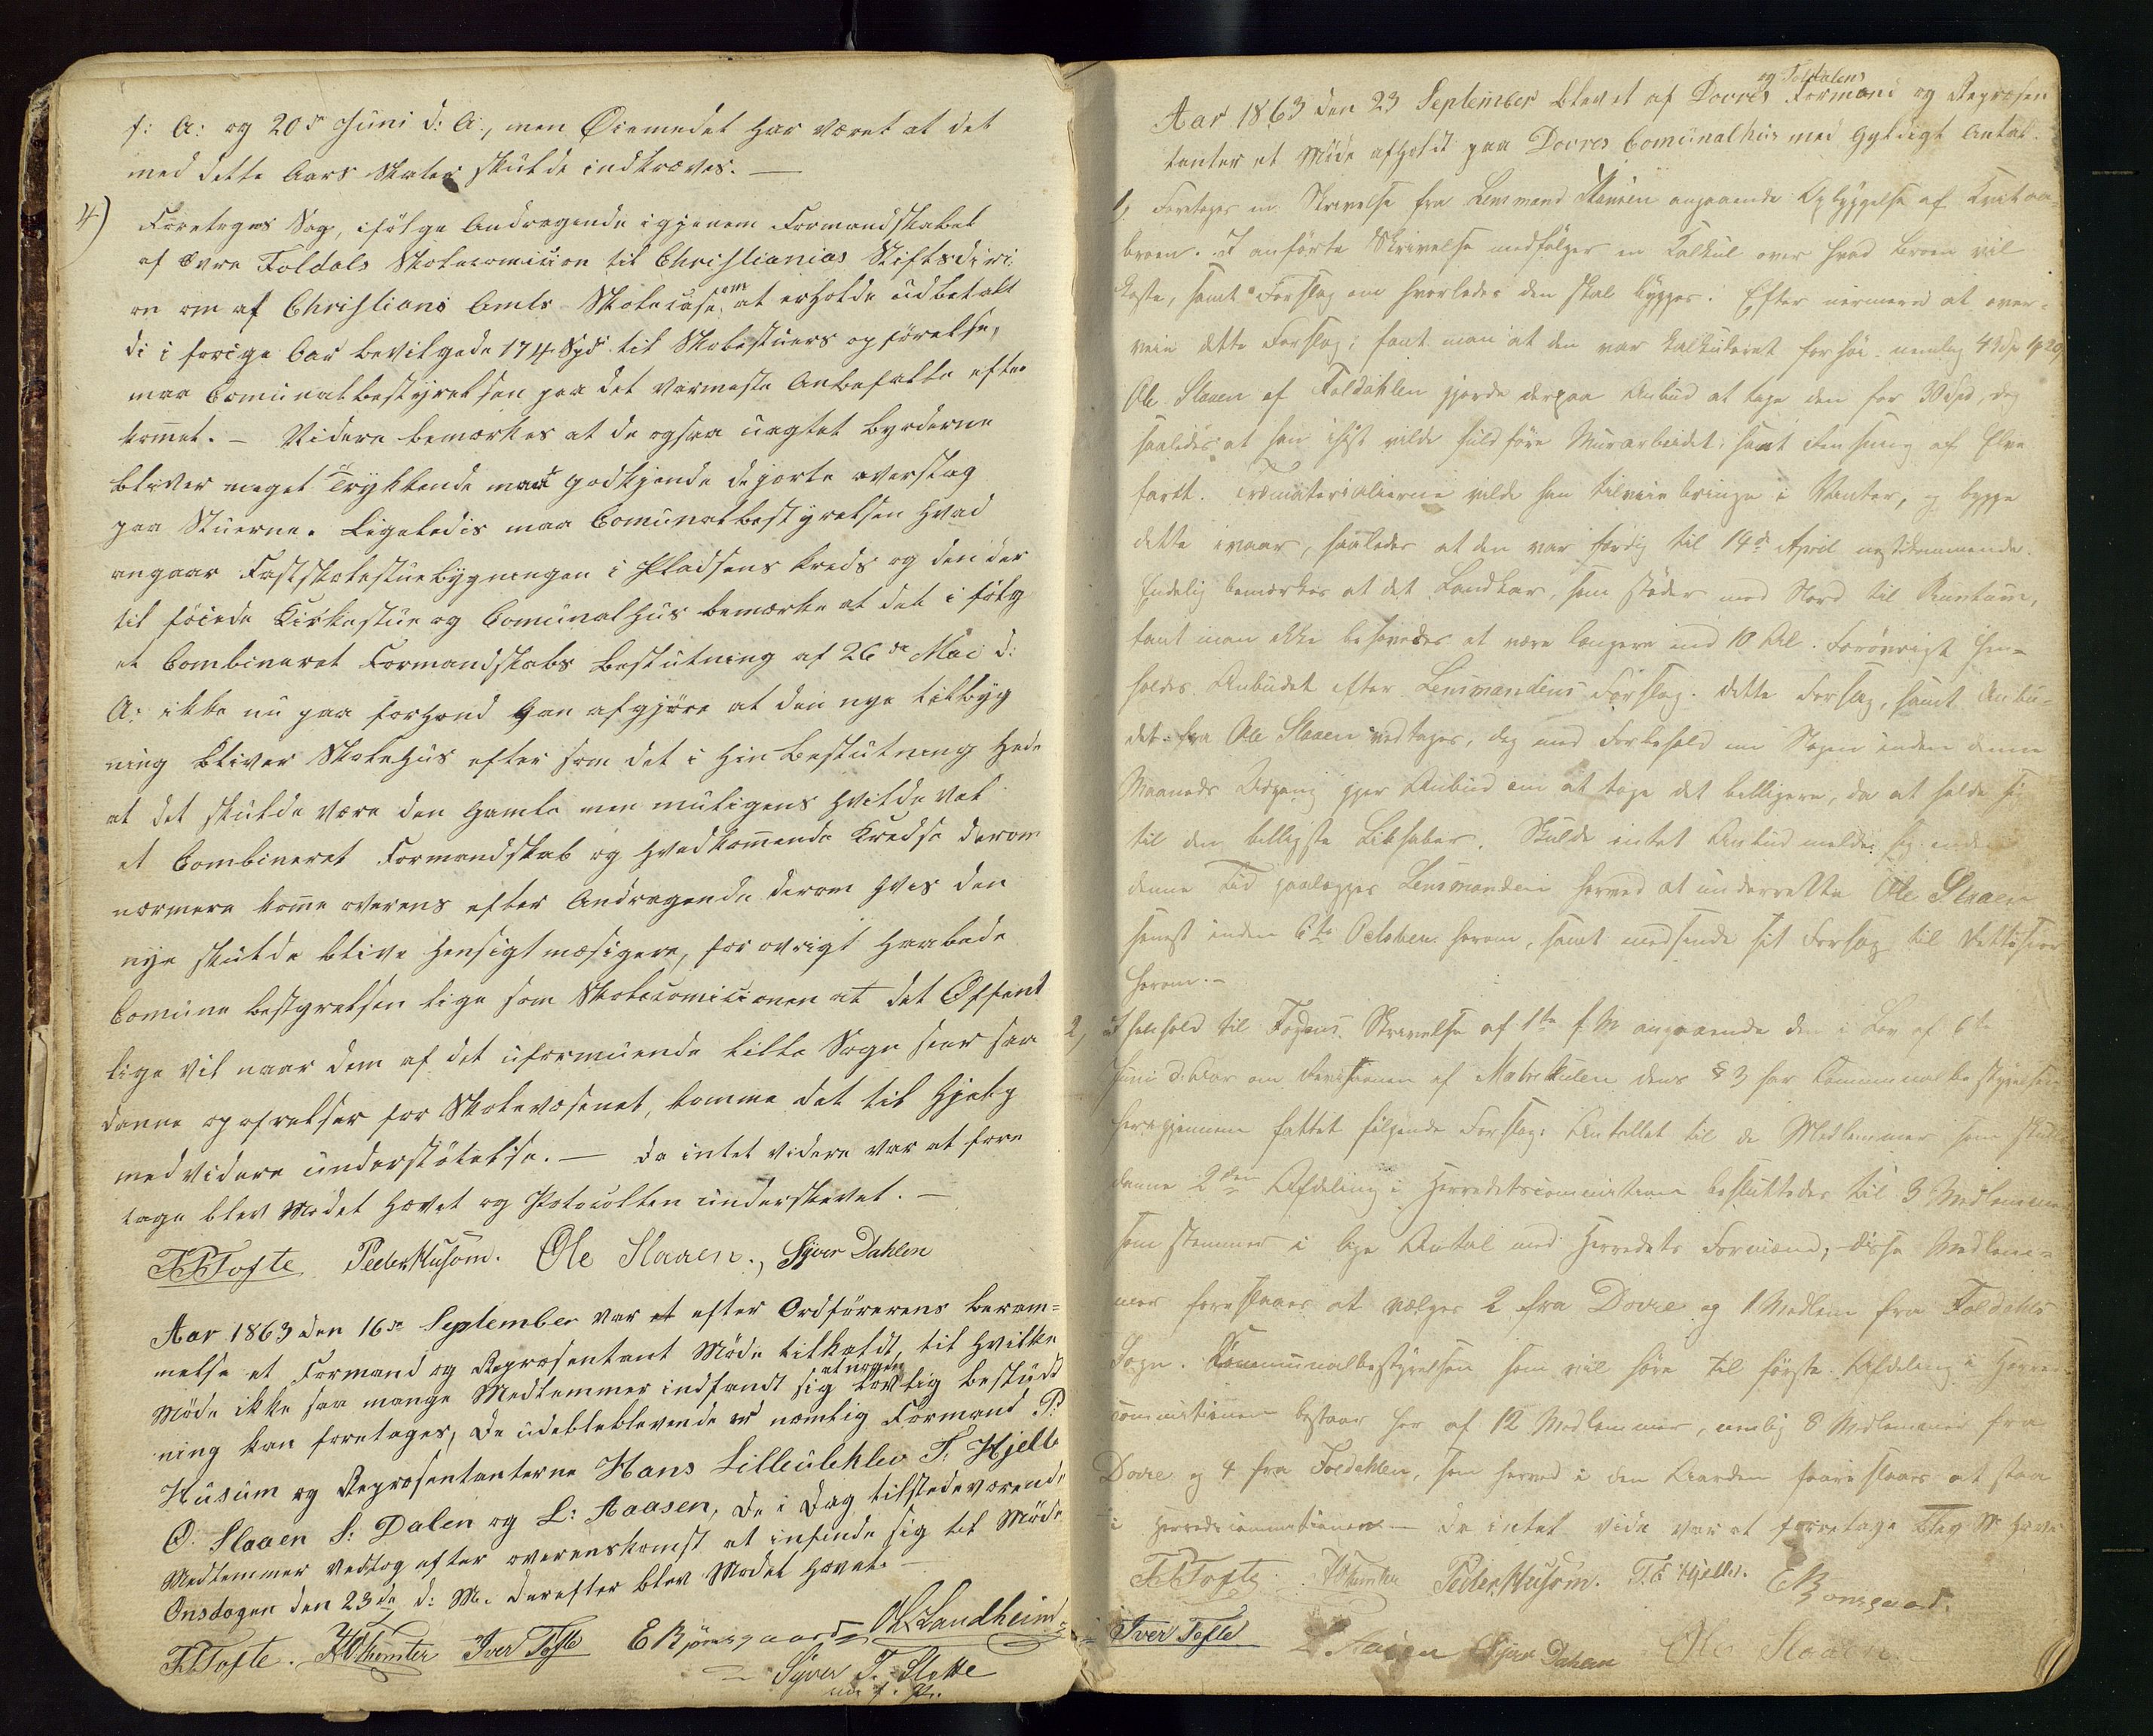 f: A: og 20de Juni d: A:, men Øiemedet har været at det
med dette Aars Skater skulde indkræves. —
4) Foretoges Sag, ifølge Andragende igjenem Formandskabet
af Øvre Foldals Skolecomission til Christianias Stiftsdire
on om af Christians Amts Skolecase, om at erholde udbetalt
di i forige Aar bevilgede 174 Spd til Skolestuers opførelse,
maa Comunalbestyrelsen paa det varmeste Anbefalle efter
komet. — Videre bemærkes at de ogsaa uagtet byrderne
bliver meget Trykkende maa godkjende degjorte overslag
paa Stuerne. Ligeledis maa Comunalbestyrelsen hvad
angaar Fastskolestuebygningen i Pladsens Kreds og den der
til føiede Kirkestue og Comunalhus bemærke at det i følg
et Combineret Formandskabs Beslutning af 26de Mai d:
A: ikke nu paa forhond kan afgjøre at den nye tilbyg
ning bliver Skolehus efter som det i hin Beslutning hede
at det skulde være den gamle men muligens hvilde vel
et Combineret Formandskab og hvedkommende Kredse derom
nærmere komme overens efter Andragende derom hvis den
nye skulde blive hensigtmæsigere, for øvrigt haabede
Comune bestyrelsen lige som Skolecomicionen at det Offent
lige vil naar dem af det uformuende lille Sogn seer saa
danne opofrelser for Skolevæsenet, komme det til Hjelp
med videre understøtelse. — da intet videre var at fore
tage blev Mødet Hævet og Potocollen underskevet. —
T T Tofte Peder Husom. Ole Slaaen., Syver Dahlen
Aar 1863 den 16de September var et efter Ordførerens beram=
melse et Formand og Repræsentant Møde tilkaldt, til hvilke
Møde ikke saa mange Medlemmer indfandt sig at nogen Lovlig beslut
ning kan foretages, De udebleblevende er nemlig Formand P:
Husum og Repræsentanterne Hans Lilleulehlev T. Hjelle
O. Slaaen S: Dalen og L: Aaasen, De i Dag tilstedeværende
Medlemmer vedtog efter overenskomst at infinde sig til Møde
Onsdagen den 23de d: M. derefter blev Mødet Hævet. —
T T Tofte. Iver Tofte E Bjørnsgaard OL Landheim
Syver T. Slette
Aar 1863 den 23 September blev et af Dovres og Foldalens Formand og Repræsen
tanter et Møde afholdt paa Dovres Comunalhus med Gyldigt Antal.
1, Foretoges en Skrivelse fra Lensmand angaaende Opbyggelse af
broen. I anførte Skrivelse medfølger en Kalkul over hvad broen vil
koste, samt Forslag om hvorledes den skal bygges. Efter nærmere at over-
veie dette Forslag; fant man at den var kalkuleret for høi. nemlig
Ole Slaaen af Foldahlen gjorde derpaa Anbud at tage den for 30 Spd, dog
saaledes at han vilde fuldføre Murarbeidet, samt Rensning af Elve
faret. Træmaterialierne vilde han tilveie bringe i Vinter, og bygge
dette i vaar, saaledes at den var færdig til 14de April næstkommende.
Endelig bemærkes at det Landkar, som støder mod Nord til
fant man ikke behøvedes at være længere end 10 Al. Forøvrigt hen-
holdes Anbudet efter Lensmandens Forslag. dette Forslag, samt Anbu-
det fra Ole Slaaen vedtages, dog med Forbehold om Nogen inden denne
Maaneds Udgang gjør Anbud om at tage det billigere, da at holde sig
til den billigste Liebhaber. Skulde intet Anbud melde sig inden
denne Tid paalægges Lensmanden herved at underrette Ole Slaaen
senest inden 6te Octoben herom, samt medsende sit Forslag til
herom. —
2, I henhold til Fogdens Skrivelse af 1ste f M angaaende den i Lov af 6te
Juni d. Aar om Revisionen af Matrikulen dens § 3 har Communalbestyrelsen
heri gjennem fattet følgende Forslag: Antallet til de Medlemmer som skulde
danne 2den Afdeling i Herredscommisionen besluttedes til 3 Medlemmer
som stemmer i lige Antal med Herredets Formænd; disse Medlem-
mer foreslaaes at vælges 2 fra Dovre og 1 Medlem fra Foldahls
Sogn. Kommunalbestyrelsen som vil høre til første Afdeling i Herreds
commisionen bestaar her af 12 Medlemmer, nemlig 8 Medlemmer fra
Dovre og 4 fra Foldahlen, som herved i den Aarden foreslaaes at staa
i Herredscommisionen — da intet vide var at foretage blev M: Hævet
T T Tofte. Peder Husom. T. E Hjelle. E Bjornsgaard.
Iver Tofte L Aasen Syver Dahlen Ole Slaaen.